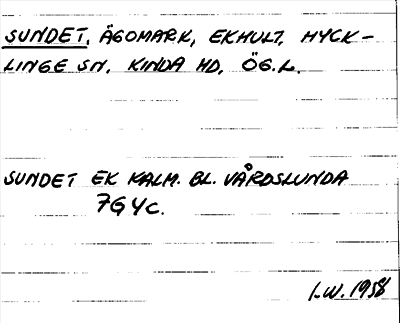 SUNDET, ÄGOMARK, EKHULT, HYCK-
LINGE SN, KINDA HD, ÖG.L.
SUNDET EK KALM. BL. VÅRDSLUNDA
7G4c.
I.W. 1958